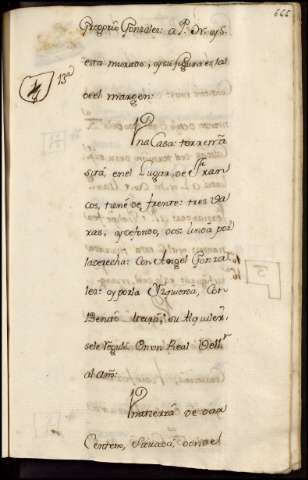 666
Gregorio Gonzalez: a P.
esta murado; y su figura es la
del el margen:
13ª
Una Casa: terrena
sita, en el Lugar, de Fran
cos, tiene de frente: tres Va
ras, y de fondo, dos linda por
la derecha: Con Angel Gonza
lez: y por la Yzquierda, Con
Benito su Alquiler,
se le regula En un Real Vellⁿ
al Año:
Una tierra de dar
Centeno, Secana, en el